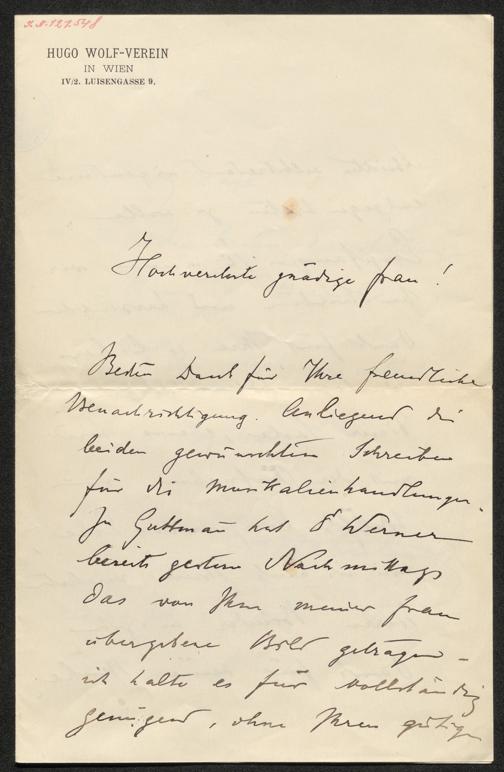 I.N.127.548
HUGO WOLF-VEREIN
IN WIEN
IV/2. LUISENGASSE 9.
Hochverehrte gnädige Frau!
Besten Dank für Ihre freundliche
Benachrichtigung. Anliegend die
beiden gewünschten Schreiben
für die Musikalienhandlungen.
Zu Guttmann hat Werner
bereits gestern Nachmittags
das von Ihnen meiner Frau
übergebene Bild getragen –
ich halte es für vollständig
genügend, ohne Ihren gütigen